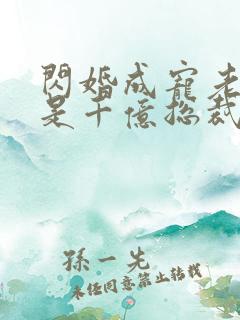 閃婚成寵老
是千億總裁
孫一先
未經同意禁止轉載